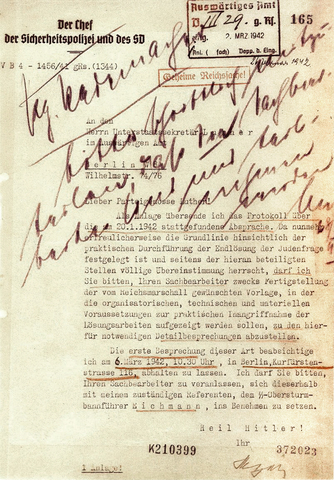 Der Chef
der Sicherheitspolizei und des SD
IV B 4 - 1456/41 gRs. (1344)
Auswärtiges Amt
D III 29 g. Rs.
2. MRZ 1942
Anl. (fach) Dopp. d. Eing.
165
1942
Geheime Reichssache!
An den
Herrn Unterstaatssekretär L u t h e r
im Auswärtigen Amt
Berlin
Wilhelmstr. 74/76
Lieber Parteigenosse Luther!
Als Anlage übersende ich das Protokoll über
die am 20.1.1942 stattgefundene Absprache. Da nunmehr
erfreulicherweise die Grundlinie hinsichtlich der
praktischen Durchführung der Endlösung der Judenfrage
festgelegt ist und seitens der hieran beteiligten
Stellen völlige Übereinstimmung herrscht, darf ich
Sie bitten, Ihren Sachbearbeiter zwecks Fertigstellung
der vom Reichsmarschall gewünschten Vorlage, in der
die organisatorischen, technischen und materiellen
Voraussetzungen zur praktischen Inangriffnahme der
Lösungsarbeiten aufgezeigt werden sollen, zu den hier-
für notwendigen Detailbesprechungen abzustellen.
Die erste Besprechung dieser Art beabsichtige
ich am 6. März 1942, 10.30 Uhr, in Berlin, Kurfürsten-
strasse 116, abhalten zu lassen. Ich darf Sie bitten,
Ihren Sachbearbeiter zu veranlassen, sich dieserhalb
mit meinem zuständigen Referenten, dem ⚡⚡-Obersturm-
bannführer E i c h m a n n , ins Benehmen zu setzen.
Heil Hitler!
Ihr
K210399
372023
1 Anlage!